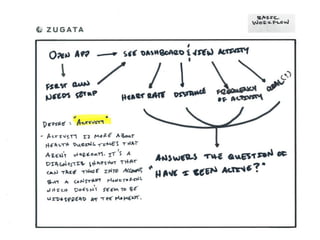 BASIC
WORKFLOW
ZUGATA
OPEN APP
SEE DASHBOARD & VIEW ACTIVITY
FIRST RUN
NEEDS SETUP
HEART RATE
DISTANCE
FREQUENCY
OF ACTIVITY
GOAL(S)
DEFINE: "ACTIVITY"
- ACTIVITY IS MORE ABOUT
HEALTH DURING TIMES THAT
AREN'T WORKOUTS. IT'S A
DIAGNOSTIC SNAPSHOT THAT
CAN TAKE THOSE INTO ACCOUNT,
BUT A CONSTANT MONITORING
WHICH DOESN'T SEEM TO BE
WIDESPREAD AT THE MOMENT.
ANSWERS THE QUESTION OF
"HAVE I BEEN ACTIVE?"